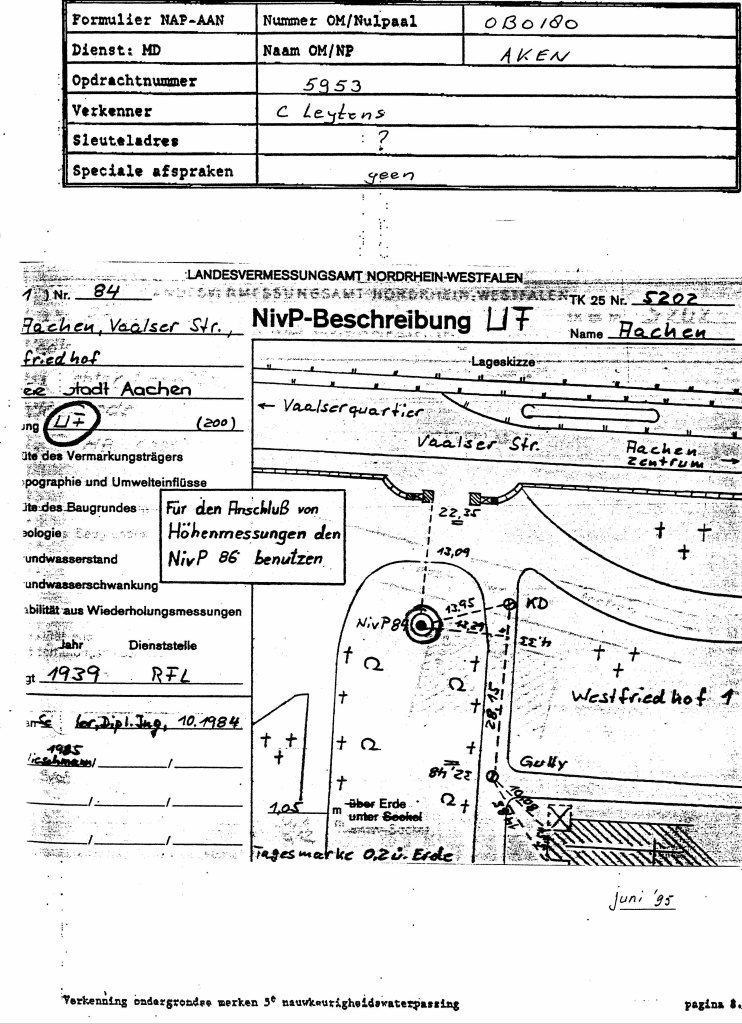 Formulier NAP-AAN Nummer OM/Nulpaal 0B0180
Dienst: MD Naam OM/NP AKEN
Opdrachtnummer 5953
Verkenner C Leytens
Sleuteladres : ?
Speciale afspraken geen
LANDESVERMESSUNGSAMT NORDRHEIN-WESTFALEN
1 ) Nr. 84
LANDESVERMESSUNGSAMT NORDRHEIN-WESTFALEN
TK 25 Nr. 5202
NivP-Beschreibung UF
Name Aachen
Aachen, Vaalser Str.,
friedhof
Stadt Aachen
ng UF (200)
Lageskizze
← Vaalserquartier
Vaalser Str.
Aachen
Zentrum →
te des Vermarkungsträgers
pographie und Umwelteinflüsse
te des Baugrundes
eologie
undwasserstand
undwasserschwankung
abilität aus Wiederholungsmessungen
Für den Anschluß von
Höhenmessungen den
NivP 86 benutzen
22,35
13,09
NivP 84
13,95
13,29
KD
4,33
28,15
Westfriedhof 1
Gully
22,48
10,08
14,85
Jahr Dienststelle
gt 1939 RFL
ler, Dipl. Ing, 10.1984
1985
1,05 m über Erde
unter Sockel
Tagesmarke 0.2 ü. Erde
juni '95
Verkenning ondergrondse merken 5e nauwkeurigheidswaterpassing pagina 8.